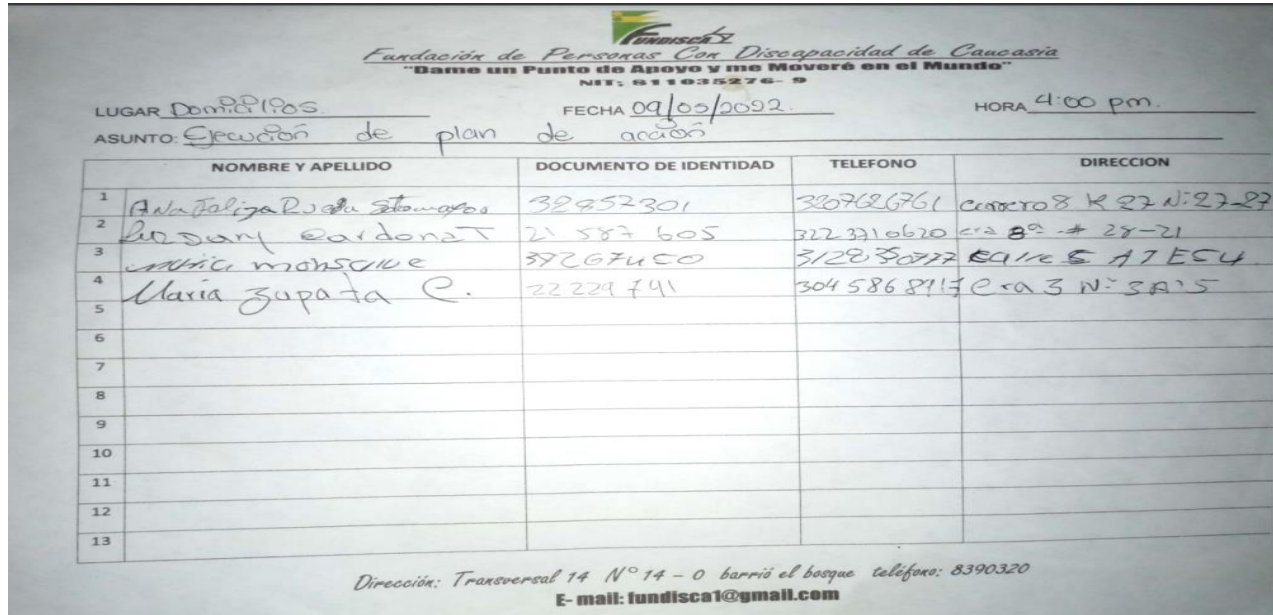 FUNDISCA
Fundación de Personas Con Discapacidad de Caucasia
"Dame un Punto de Apoyo y me Moveré en el Mundo"
NIT: 811035276- 9
LUGAR Domicilios. FECHA 09/05/2022. HORA 4:00 pm.
ASUNTO: Ejecución de plan de acción
NOMBRE Y APELLIDO DOCUMENTO DE IDENTIDAD TELEFONO DIRECCION
1 Ana 32852301 3207626761 8 K 27 N: 27-27
2 Luz Dary Cardona T 21 587 605 322 3710620 cra 8ª # 28-21
3 monsalve 5
4 Maria Zupata C. 22 229 741 304 586 8917 Cra 3 Nº 3A:5
5
6
7
8
9
10
11
12
13
Dirección: Transversal 14 N° 14 - 0 barrió el bosque teléfono: 8390320
E- mail: fundisca1@gmail.com